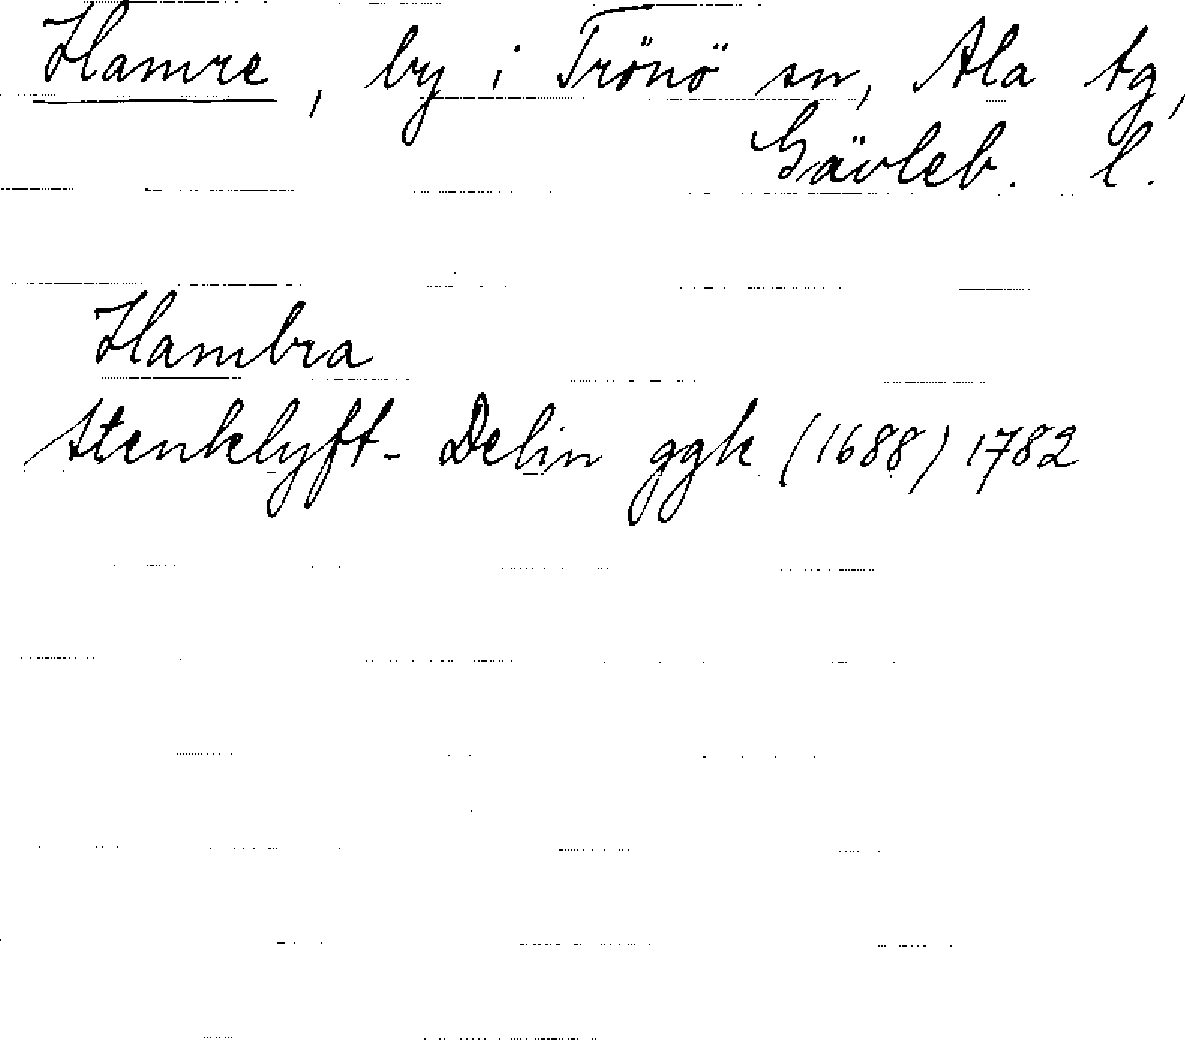 Hamre, by i Trönö sn, Ala tg,
Gävleb. l.
Hambra
Stenklyft- Delin ggk (1688) 1782